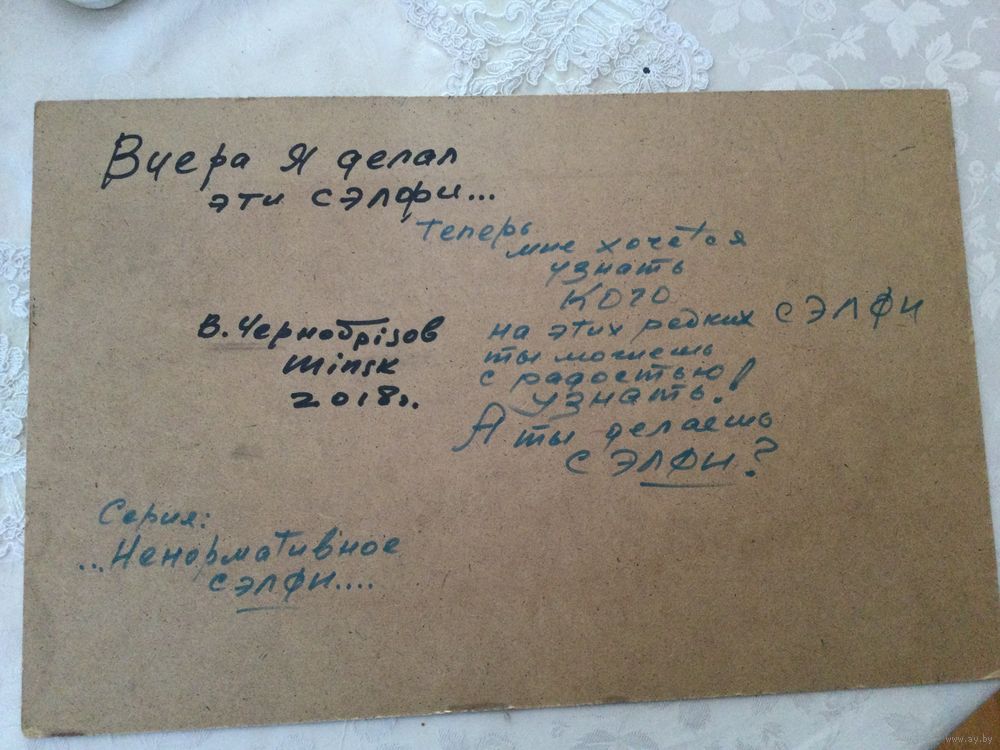 Вчера я делал
эти сэлфи...
теперь
мне хочется
узнать
кого
на этих редких СЭЛФИ
ты можешь
с радостью
узнать!
А ты делаешь
СЭЛФИ?
В. Чернобрisов
Minsk
2018г.
Серия:
...Ненормативное
сэлфи....
www.ay.by